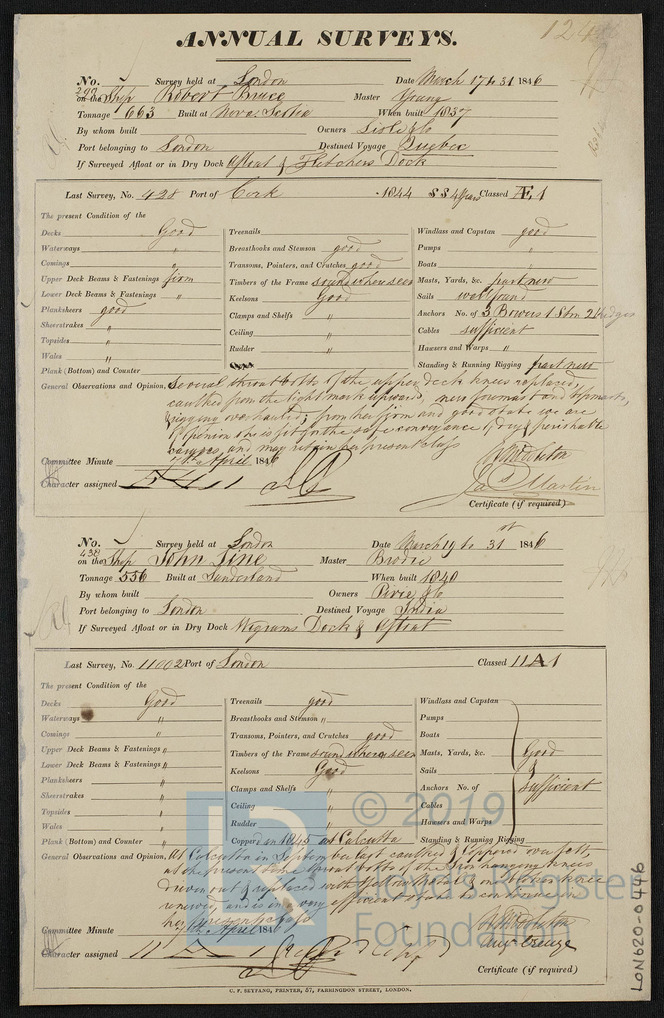 ANNUAL SURVEYS.
No. Survey held at London Date March 17 & 31 1846
on the Ship Robert Bruce Master Young
Tonnage 663 Built at Nova Scotia When built 1837
By whom built Owners Lisle & Co
Port belonging to London Destined Voyage Quebec
If Surveyed Afloat or in Dry Dock Afloat & Fletchers Dock
Last Survey, No. 428 Port of Cork 1844 SS 4 Years Classed Æ 1
The present Condition of the
Decks Good Treenails Windlass and Capstan good
Waterways " Breasthooks and Stemson good Pumps "
Comings " Transoms, Pointers, and Crutches good Boats "
Upper Deck Beams & Fastenings firm Timbers of the Frame sound where seen Masts, Yards, &c. part new
Lower Deck Beams & Fastenings " Keelsons Good Sails well found
Planksheers good Clamps and Shelfs " Anchors No. of 3 Bowers 1 Strm 2 Kedges
Sheerstrakes " Ceiling " Cables sufficient
Topsides " Rudder " Hawsers and Warps "
Wales "
Plank (Bottom) and Counter " Standing & Running Rigging part new
General Observations and Opinion, Several throat bolts of the upper deck knees replaced,
caulked from the light mark upward, new foremast and topmasts,
rigging overhauled; from her firm and good state we are
of opinion she is fit for the safe conveyance of dry & perishable
cargoes, and may retain her present class
Committee Minute April 1846
Character assigned Æ 1
Martin
Certificate (if required)
No. Survey held at London Date March 19 to 31st 1846
438
on the Ship John Line Master Brodie
Tonnage 556 Built at Sunderland When built 1840
By whom built Owners Pirie & Co
Port belonging to London Destined Voyage India
If Surveyed Afloat or in Dry Dock Wigrams Dock & Afloat
Last Survey, No. 11002 Port of London Classed 11 A 1
The present Condition of the
Decks Good Treenails good Windlass and Capstan
Waterways " Breasthooks and Stemson " Pumps
Comings " Transoms, Pointers, and Crutches good Boats
Upper Deck Beams & Fastenings " Timbers of the Frame sound where seen Masts, Yards, &c. Good
Lower Deck Beams & Fastenings " Keelsons Good Sails &
Planksheers " Clamps and Shelfs " Anchors No. of sufficient
Sheerstrakes " Ceiling " Cables
Topsides " Rudder " Hawsers and Warps
Wales "
Plank (Bottom) and Counter " Copper'd in 1845 at Calcutta Standing & Running Rigging
General Observations and Opinion, At Calcutta in September last caulked & coppered over felt,
at the present time throat bolts of the iron hanging knees
driven out & replaced with yellow metal,
renewed, and is in a very efficient state to continue in
her present class
Committee Minute April 1846
Character assigned 11 A 1
Augn Creuze
Certificate (if required)
C. F. SEYFANG, PRINTER, 57, FARRINGDON STREET, LONDON.
LON620-0446
© 2019
Lloyd's Register
Foundation